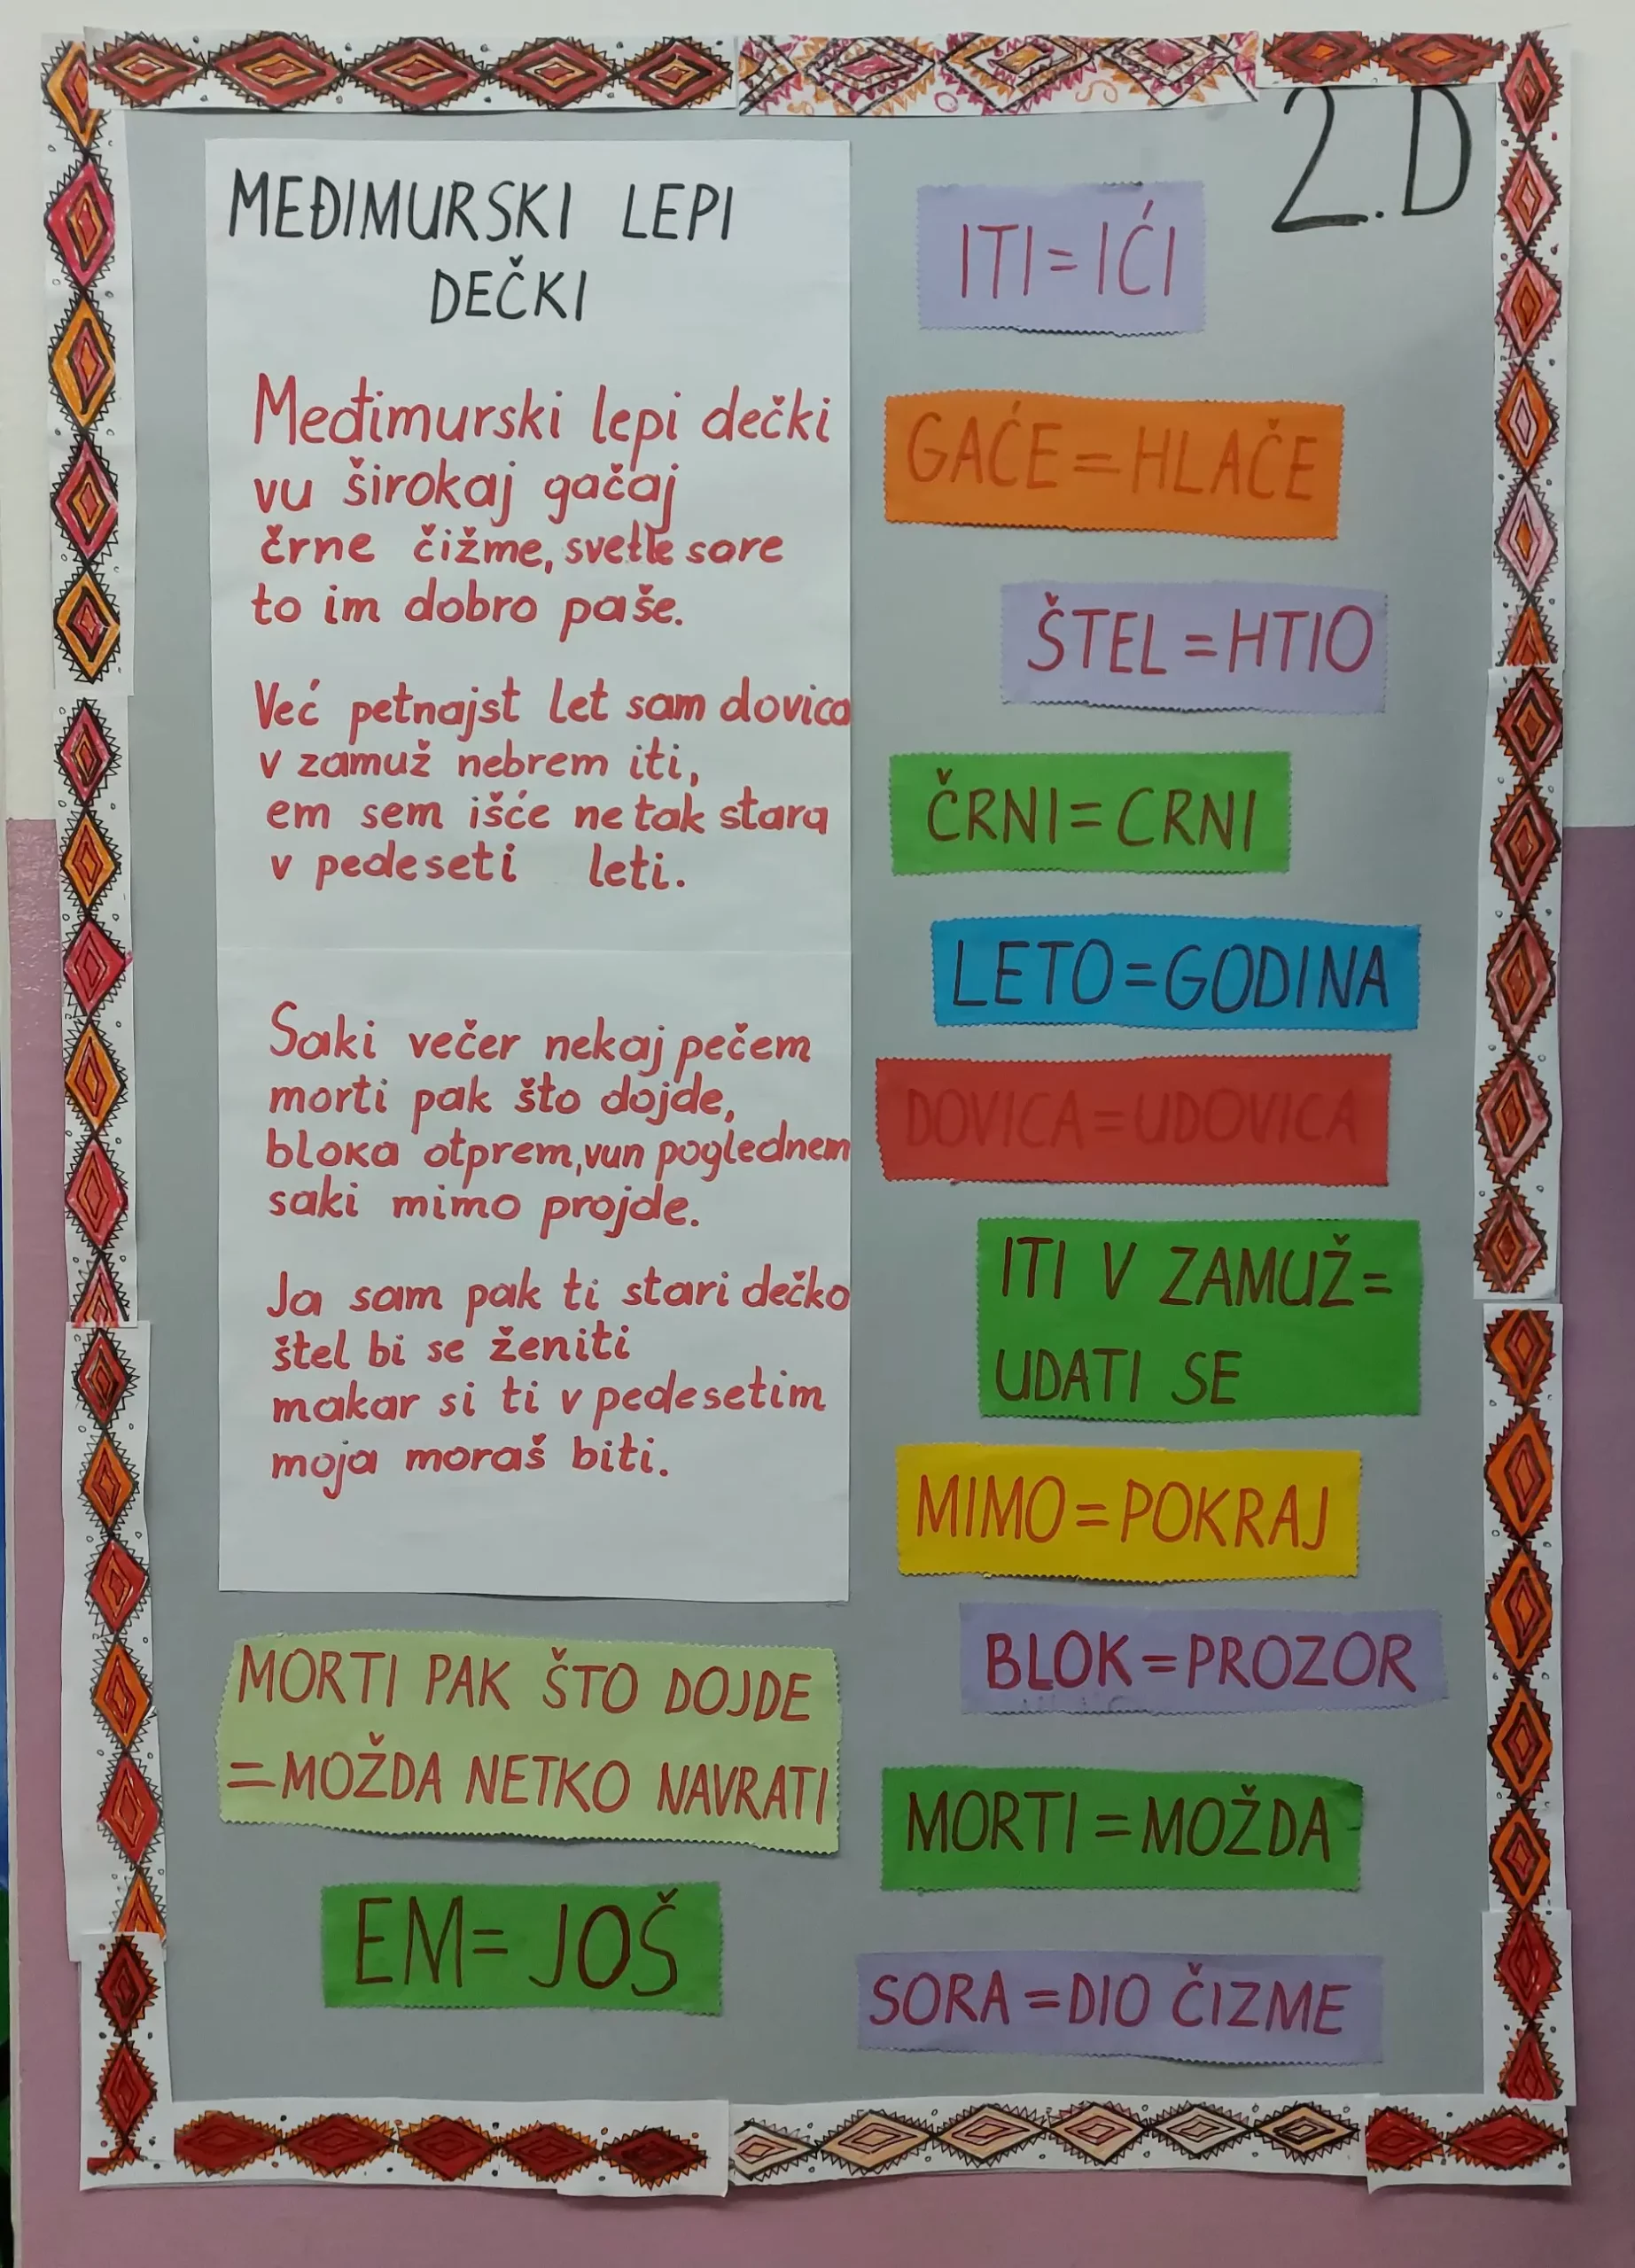 2.D
MEĐIMURSKI LEPI
DEČKI
Međimurski lepi dečki
vu širokaj gačaj
črne čižme, svetle sore
to im dobro paše.
Već petnajst let sam dovica
v zamuž nebrem iti,
em sem išće ne tak stara
v pedeseti leti.
Saki večer nekaj pečem
morti pak što dojde,
bloka otprem, vun poglednem
saki mimo projde.
Ja sam pak ti stari dečko
štel bi se ženiti
makar si ti v pedesetim
moja moraš biti.
MORTI PAK ŠTO DOJDE
=MOŽDA NETKO NAVRATI
EM= JOŠ
ITI=IĆI
GAĆE=HLAČE
ŠTEL=HTIO
ČRNI=CRNI
LETO=GODINA
DOVICA=UDOVICA
ITI V ZAMUŽ=
UDATI SE
MIMO=POKRAJ
BLOK=PROZOR
MORTI=MOŽDA
SORA=DIO ČIZME